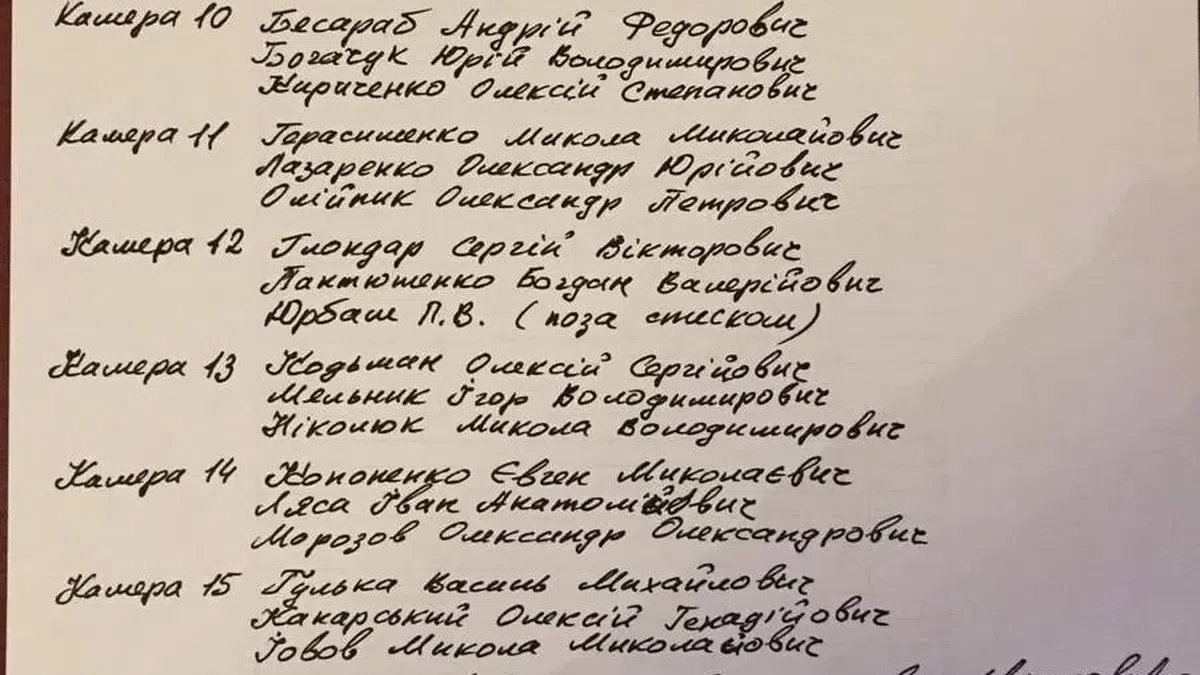 Камера 10 Бесараб Андрій Федорович
Богачук Юрій Володимирович
Кириченко Олексій Степанович
Камера 11 Герасименко Микола Миколайович
Лазаренко Олександр Юрійович
Олійник Олександр Петрович
Камера 12 Глондар Сергій Вікторович
Пантюшенко Богдан Валерійович
Юрбаш П.В. (поза списком)
Камера 13 Кодьман Олексій Сергійович
Мельник Ігор Володимирович
Ніколюк Микола Володимирович
Камера 14 Кононенко Євген Миколаєвич
Ляса Іван Анатолійович
Морозов Олександр Олександрович
Камера 15 Гулька Василь Михайлович
Какарський Олексій Генадійович
Іовов Микола Миколайович